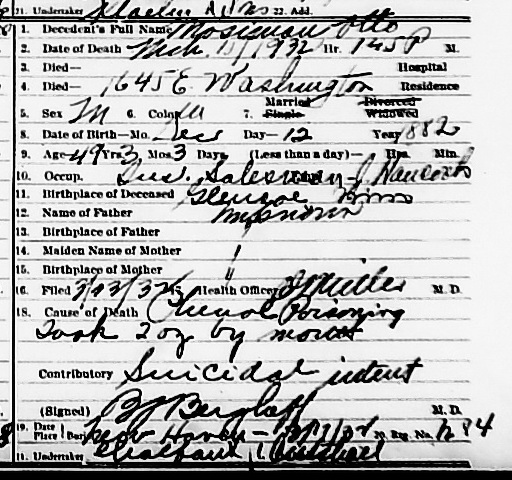 21. Undertaker 22. Add.
1. Decedent's Full Name Mosiman Otto
2. Date of Death Mch 1932 Hr. 145 P M.
3. Died— Hospital
4. Died— 1645 E Washington Residence
5. Sex M 6. Color W 7. Married Single Divorced Widowed
8. Date of Birth—Mo. Dec Day— 12 Year 1882
9. Age 49 Yrs. 3 Mos 3 Days (Less than a day)— Hrs. Min.
10. Occup. Ins. Salesman - J Hancock
11. Birthplace of Deceased Glencoe
12. Name of Father Unknown
13. Birthplace of Father "
14. Maiden Name of Mother "
15. Birthplace of Mother "
16. Filed Health Officer Miller M. D.
18. Cause of Death Phenol Poisoning
Took 2 oz by mouth
Contributory Suicidal intent
(Signed) Berghoff M. D.
19. Date Place Bur. New Haven - Reg. No. 84
11. Undertaker